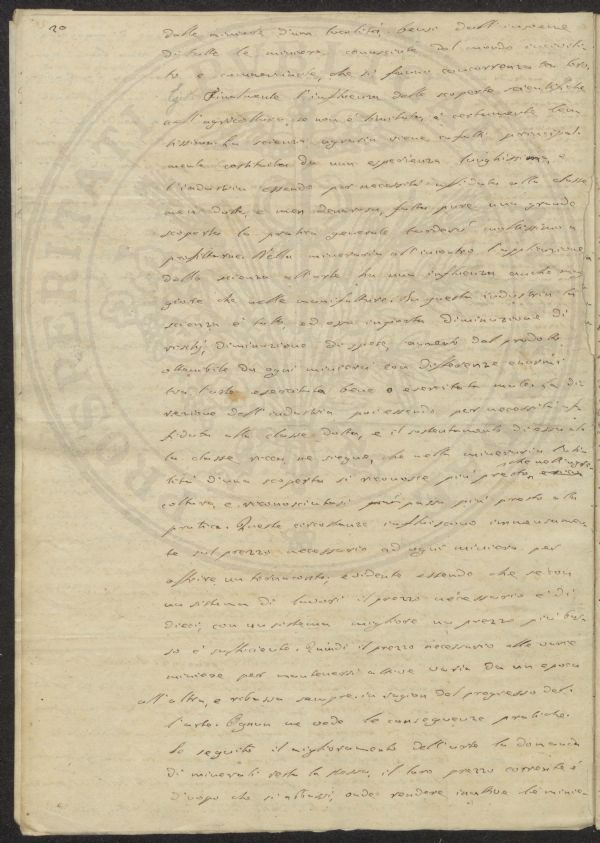 20
dalle miniere d'una località, bensì dall'insieme
di tutte le miniere conosciute dal mondo incivili-
to e commerciale, che si fanno concorrenza tra loro.
Finalmente l'influenza delle scoperte scientifiche
sull'agricoltura, se non è limitata, è certamente len-
tissima. La scienza agraria viene infatti principal-
mente costituita da una esperienza lunghissima, e
l'industria essendo per necessità affidata alla classe
men dotta, e men denarosa, fatta pure una grande
scoperta la pratica generale tarderà moltissimo a
profittarne. Nella mineraria all'incontro l'applicazione
della scienza all'arte ha una influenza anche mag-
giore che nelle manifatture. In questa industria la
scienza è tutto, ed essa importa diminuzione di
rischj, diminuzione di spese, aumento del prodotto
ottenibile da ogni miniera con differenze enormi
tra l'arte esercitata bene o esercitata male. La di-
rezione dell'industria poi essendo per necessità af-
fidata alla classe dotta, e il sostentamento di essa al-
la classe ricca ne siegue, che nella mineraria l'uti-
lità d'una scoperta si riconosce più presto, che nell'agri-
coltura, e riconosciutasi passa più presto alla
pratica. Queste circostanze influiscono immensamen-
te sul prezzo necessario ad ogni miniera per
offrire un tornaconto, evidente essendo che se con
un sistema di lavori il prezzo necessario è di
dieci, con un sistema migliore un prezzo più bas-
so è sufficiente. Quindi il prezzo necessario alle varie
miniere per mantenersi attive varia da un epoca
all'altra, e ribassa sempre in ragion del progresso del-
l'arte. Ognun ne vede le conseguenze pratiche.
Se seguito il miglioramento dell'arte la domanda
di minerali resta la stessa, il loro prezzo corrente è
d'uopo che si abbassi, onde rendere inattive le minie-